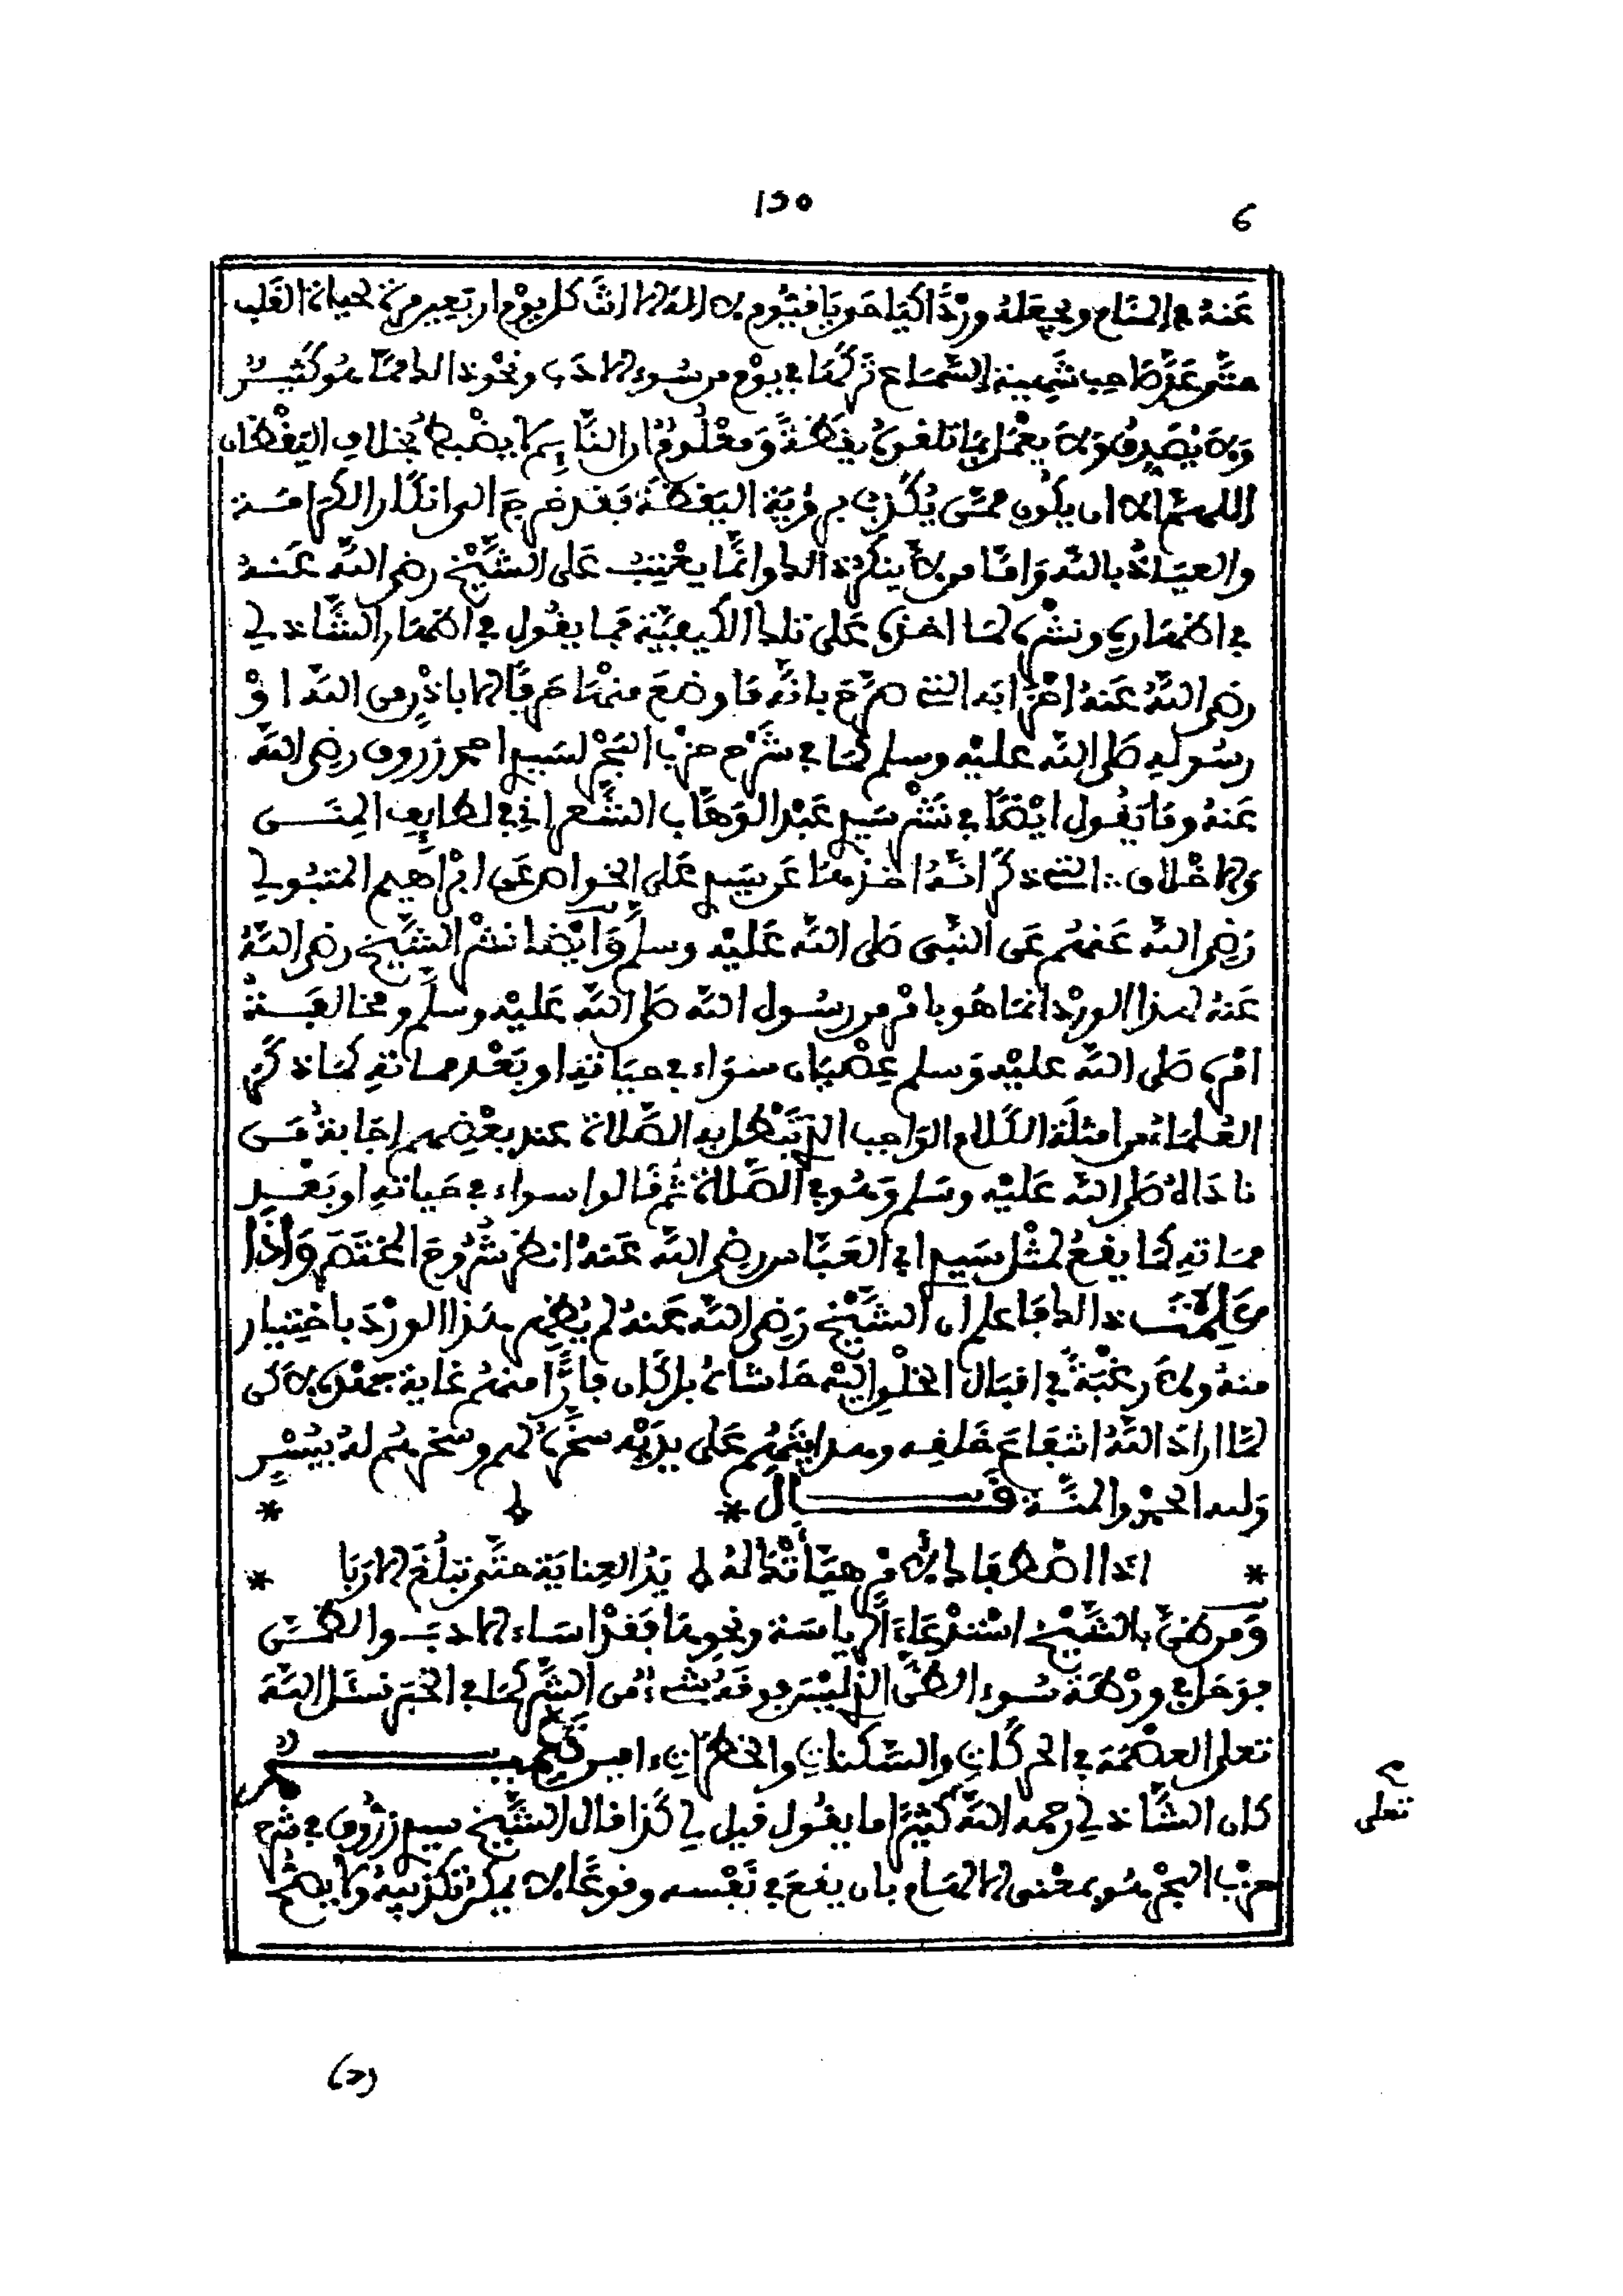 150
6
عَنهُ في المنام ويجعَله وِرْدًا كيا حي يا قيوم لا إله إلا انتَ كل يوم اربعين مرة لحياة القلب
حتى عَدَّ صَاحب سَفينة السَّمَاع تركهَا في يوْم من سُوء الادَب ونحْو ذالك ممّا هُو كَثير
وَلا يُصَدِّق وَلا يعْمَل بمَا تلقوهُ يقظَةً وَمعْلُومٌ ان النَّائم لا يضْبط بخلاف اليَقْظان
اللهمَّ الا ان يكُون ممَّن يُكذّب برؤيَة اليَقظة فقد خرجَ الى انكار الكرامَة
والعيَاذُ بالله وَامّا من لا ينكر ذالك وانّما يعْتِبُ عَلى الشَّيْخ رضي الله عَنه
في اظهَاره ونشْره لمَا اخذهُ عَلى تلك الكيفيَّة فما يقُول في اظهَار الشّاذلي
رضي اللهُ عَنهُ احزَابه التي صرّحَ بانّه مَا وضعَ منهَا حَرفًا الا باذْنٍ من الله اوْ
رسُوله صَلى الله عليْه وسلم كمَا في شَرْح حزْب البَحْر لسَيدي احمد زَرّوق رضِي الله
عَنهُ ومَا يَقُول ايْضًا في نَشْر سَيدي عَبْد الوَهّاب الشّعراني في لطايف المِنَن
والاخْلاق التي ذكرَ انّهُ اخذهَا عَن سَيدي عَلي الخواص عَن ابْراهيم المتبُولي
رَضِي الله عَنهُم عَن النّبي صَلى الله عَليْه وسلّم وَايْضا نشْر الشَّيخ رضي اللهُ
عَنهُ لهذا الورْد انمَا هُو بامْر من رسُول الله صَلى الله عَليْه وسلّم ومخالفَة
امْره صَلى الله عليْه وَسلم عِصْيَان سوَاء في حيَاته او بَعْد ممَاته كمَا ذكره
العُلمَاءُ من امثلَة الكلام الوَاجب الذي تبْطل به الصّلاة عند بعْضهم إجَابةُ مَن
نادَاهُ صَلى الله عَليْه وسَلم وَهُو في الصّلاة ثمّ قَالوا سواء في حَياته او بَعْد
ممَاته كمَا يقعُ لمثْل سَيدي ابي العَبّاس رضي الله عَنهُ انظر شُرُوحَ المختَصر وَاذَا
علِمْتَ ذالك فَاعلم ان الشَّيْخ رَضِي الله عَنهُ لم يُظهر هذا الورْدَ باخْتيار
منهُ ولا رغْبَةً في اقبَال الخلْق اليْه حَاشاهُ بل كَان فارًّا منهُم غاية جهْده لاكن
لمَّا ارادَ اللهُ انتفَاعَ خَلقِه وهدايتَهُم عَلى يدَيْه سخّرهُ لهم وسَخّرهُم لهُ بيُسْرٍ
وَلله الحمْد والمنّة قَال * *
* اذا اصْطفَاك لأمْر هيّأتْكَ لهُ يَدُ العِنايَة حتّى تبْلُغَ الارَبَا *
وَمن ظنَّ بالشّيْخ اسْتدْعَاءَ الرّياسَة ونحوهَا فقَدْ اسَاء الادبَ والظنّ
فوَحَل في ورْطَة سُوء الظنّ الذي ليْسَ فوقَهُ شيْءٌ من الشّر كمَا في الخبَر نسئَل الله
تعلى العِصْمَة في الحركَاتِ والسّكنَاتِ والخطرَاتِ ءامين
كان الشَّاذلي رحمه الله كثيرًا ما يقُول قيل لي كَذا قال الشَّيخ سيدي زرُّوق في شَرح
حزْب البحْر هُو بمعْنى الالهَام بان يقعَ في نفْسه وقوعًا لا يمكنُ تكذيبُه ولا يصحُّ
تعلى